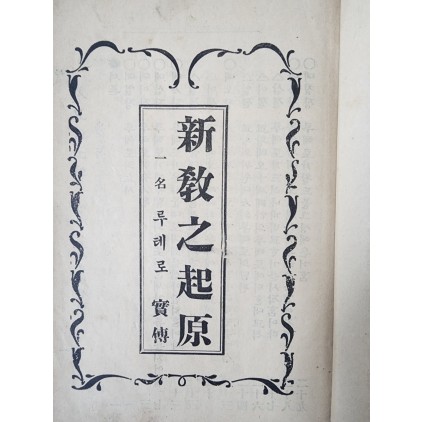 新敎之起原
一名 루테로 實傳